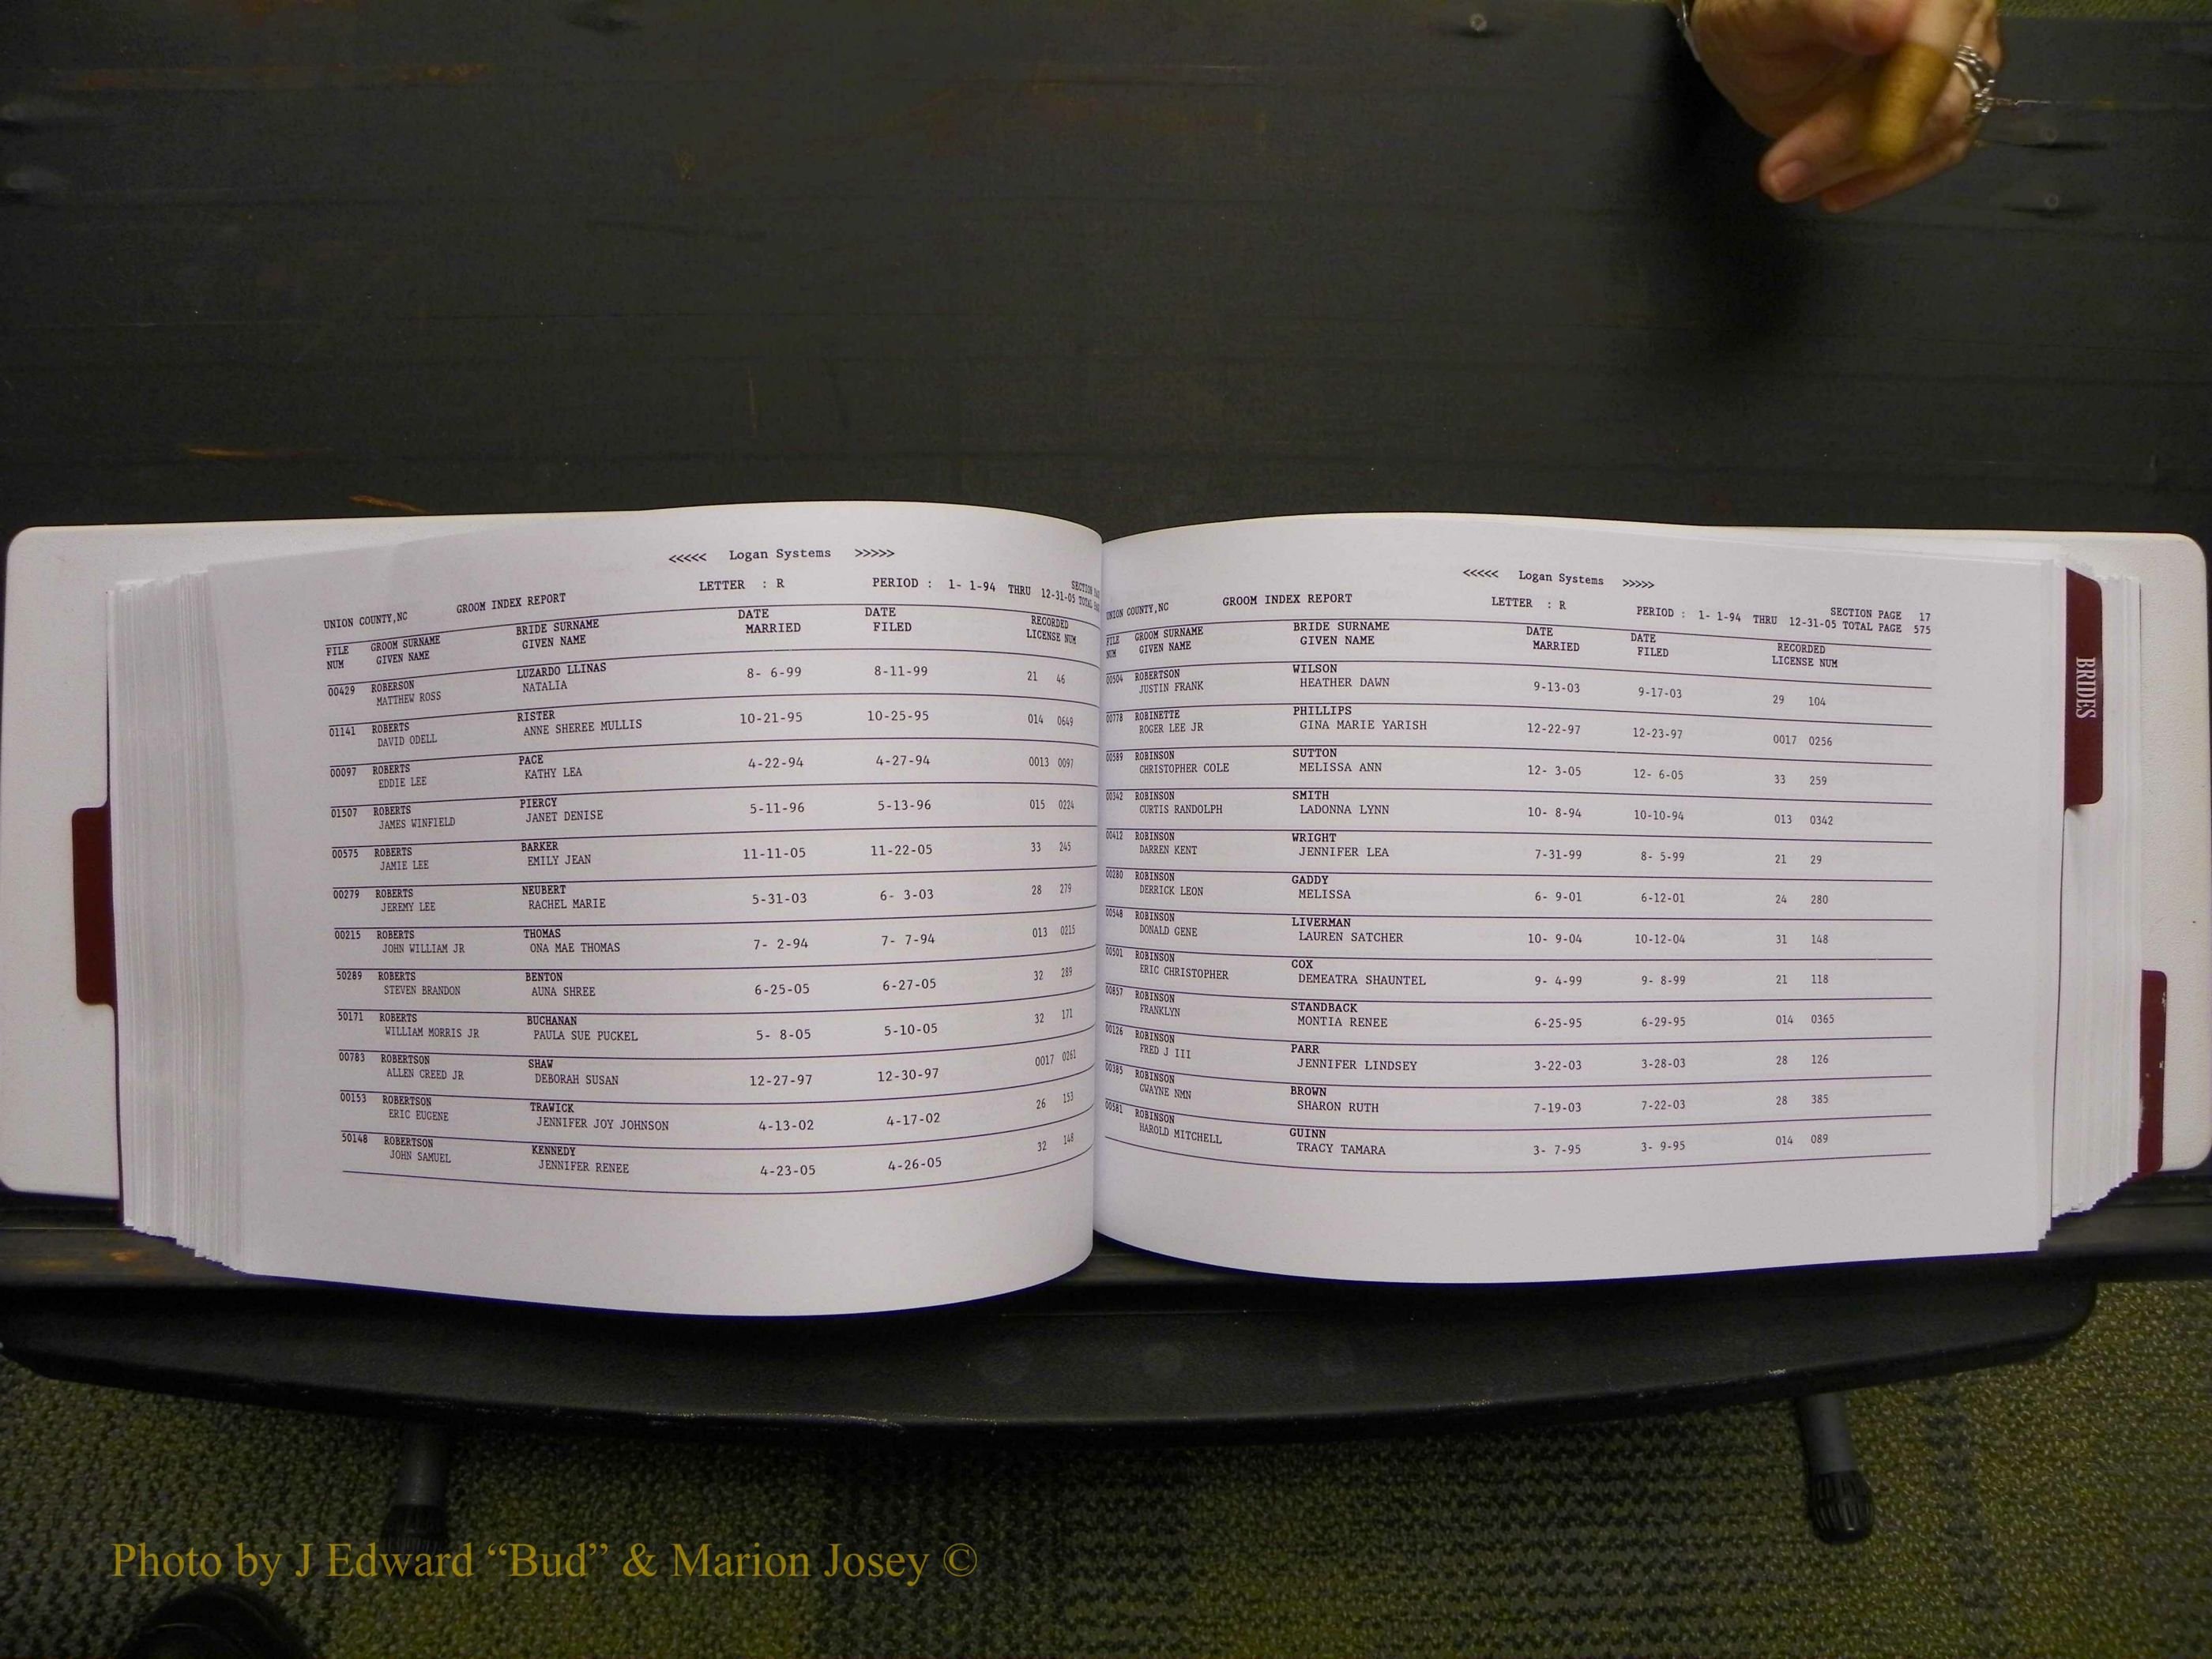 <<<<< Logan Systems >>>>>
UNION COUNTY,NC GROOM INDEX REPORT LETTER : R PERIOD : 1- 1-94 THRU 12-31-05
FILE GROOM SURNAME BRIDE SURNAME DATE DATE RECORDED
NUM GIVEN NAME GIVEN NAME MARRIED FILED LICENSE NUM
00429 ROBERSON LUZARDO LLINAS 8- 6-99 8-11-99 21 46
MATTHEW ROSS NATALIA
01141 ROBERTS RISTER 10-21-95 10-25-95 014 0649
DAVID ODELL ANNE SHEREE MULLIS
00097 ROBERTS PACE 4-22-94 4-27-94 0013 0097
EDDIE LEE KATHY LEA
01507 ROBERTS PIERCY 5-11-96 5-13-96 015 0224
JAMES WINFIELD JANET DENISE
00575 ROBERTS BARKER 11-11-05 11-22-05 33 245
JAMIE LEE EMILY JEAN
00279 ROBERTS NEUBERT 5-31-03 6- 3-03 28 279
JEREMY LEE RACHEL MARIE
00215 ROBERTS THOMAS 7- 2-94 7- 7-94 013 0215
JOHN WILLIAM JR ONA MAE THOMAS
50289 ROBERTS BENTON 6-25-05 6-27-05 32 289
STEVEN BRANDON AUNA SHREE
50171 ROBERTS BUCHANAN 5- 8-05 5-10-05 32 171
WILLIAM MORRIS JR PAULA SUE PUCKEL
00783 ROBERTSON SHAW 12-27-97 12-30-97 0017 0261
ALLEN CREED JR DEBORAH SUSAN
00153 ROBERTSON TRAWICK 4-13-02 4-17-02 26 153
ERIC EUGENE JENNIFER JOY JOHNSON
50148 ROBERTSON KENNEDY 4-23-05 4-26-05 32 148
JOHN SAMUEL JENNIFER RENEE
<<<<< Logan Systems >>>>>
UNION COUNTY,NC GROOM INDEX REPORT LETTER : R PERIOD : 1- 1-94 THRU 12-31-05 SECTION PAGE 17
TOTAL PAGE 575
FILE GROOM SURNAME BRIDE SURNAME DATE DATE RECORDED
NUM GIVEN NAME GIVEN NAME MARRIED FILED LICENSE NUM
00504 ROBERTSON WILSON 9-13-03 9-17-03 29 104
JUSTIN FRANK HEATHER DAWN
00778 ROBINETTE PHILLIPS 12-22-97 12-23-97 0017 0256
ROGER LEE JR GINA MARIE YARISH
00589 ROBINSON SUTTON 12- 3-05 12- 6-05 33 259
CHRISTOPHER COLE MELISSA ANN
00342 ROBINSON SMITH 10- 8-94 10-10-94 013 0342
CURTIS RANDOLPH LADONNA LYNN
00412 ROBINSON WRIGHT 7-31-99 8- 5-99 21 29
DARREN KENT JENNIFER LEA
00280 ROBINSON GADDY 6- 9-01 6-12-01 24 280
DERRICK LEON MELISSA
00548 ROBINSON LIVERMAN 10- 9-04 10-12-04 31 148
DONALD GENE LAUREN SATCHER
00501 ROBINSON COX 9- 4-99 9- 8-99 21 118
ERIC CHRISTOPHER DEMEATRA SHAUNTEL
00857 ROBINSON STANDBACK 6-25-95 6-29-95 014 0365
FRANKLYN MONTIA RENEE
00126 ROBINSON PARR 3-22-03 3-28-03 28 126
FRED J III JENNIFER LINDSEY
00385 ROBINSON BROWN 7-19-03 7-22-03 28 385
GWAYNE NMN SHARON RUTH
00581 ROBINSON GUINN 3- 7-95 3- 9-95 014 089
HAROLD MITCHELL TRACY TAMARA
BRIDES
Photo by J Edward “Bud” & Marion Josey ©